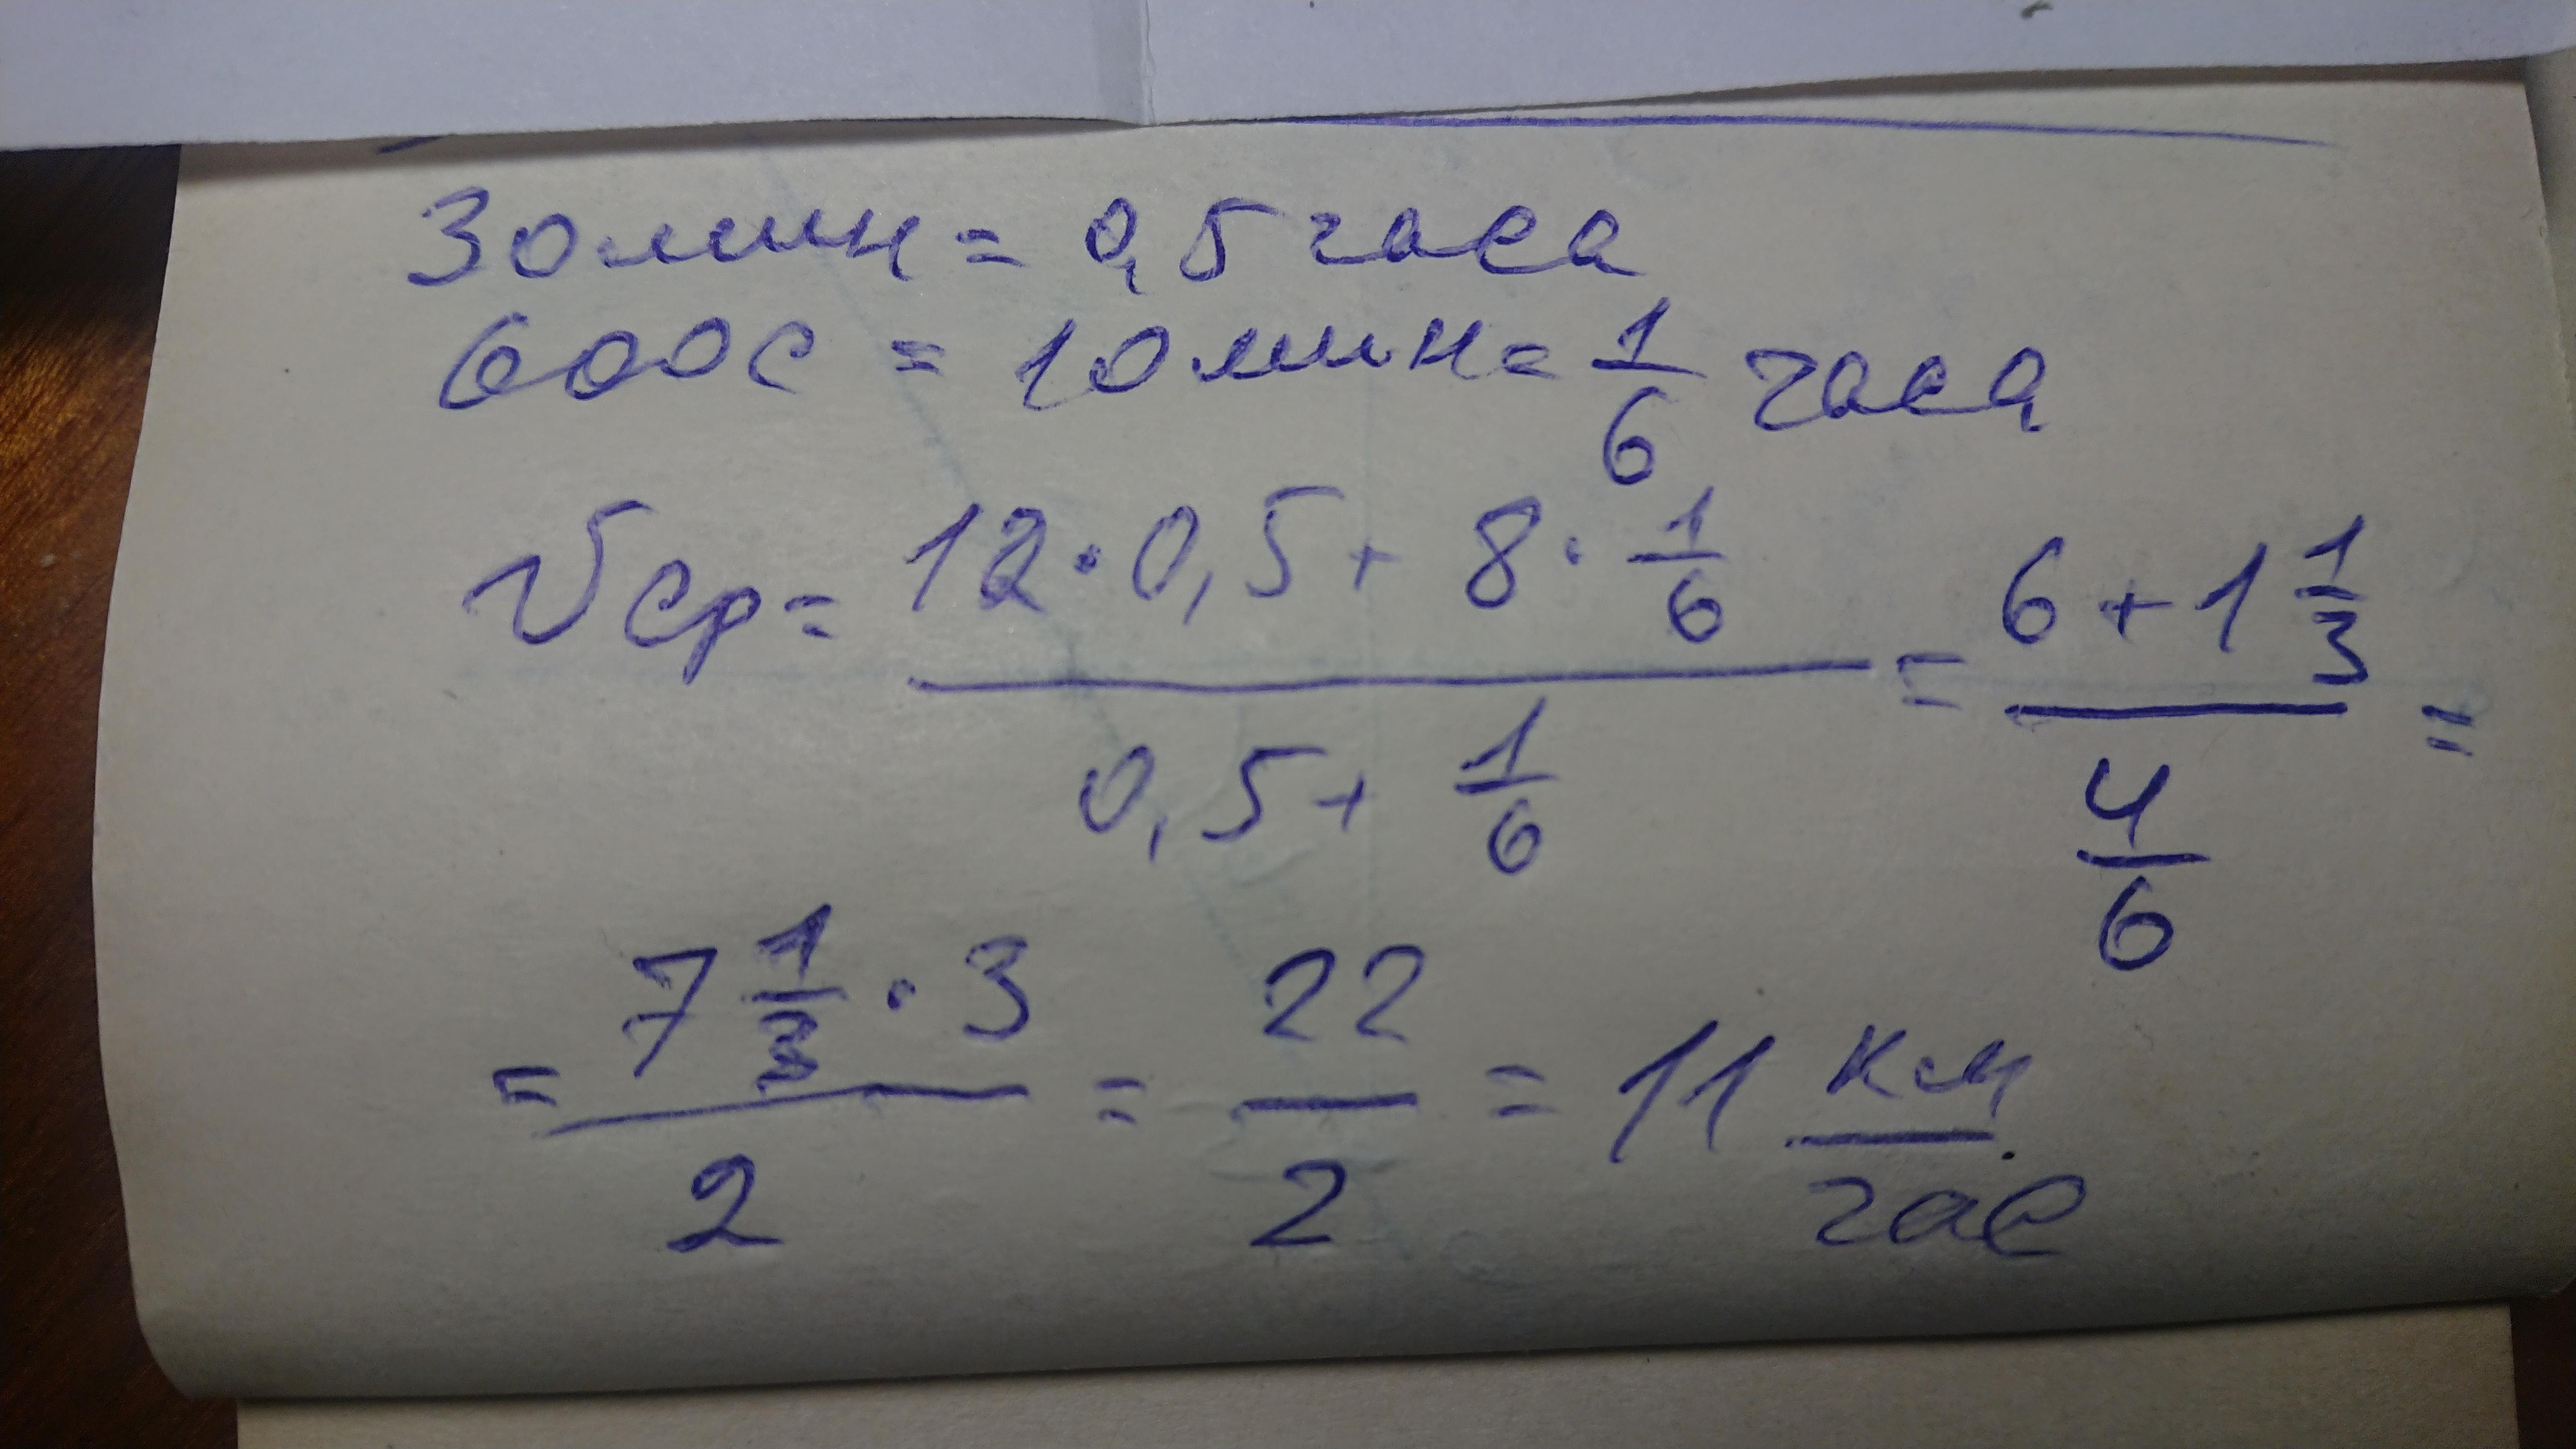 30 мин = 0,5 часа
600 с = 10 мин = 1/6 часа
Vср = (12 · 0,5 + 8 · 1/6) / (0,5 + 1/6) = (6 + 1 1/3) / (4/6) =
= (7 1/3 · 3) / 2 = 22/2 = 11 км/час